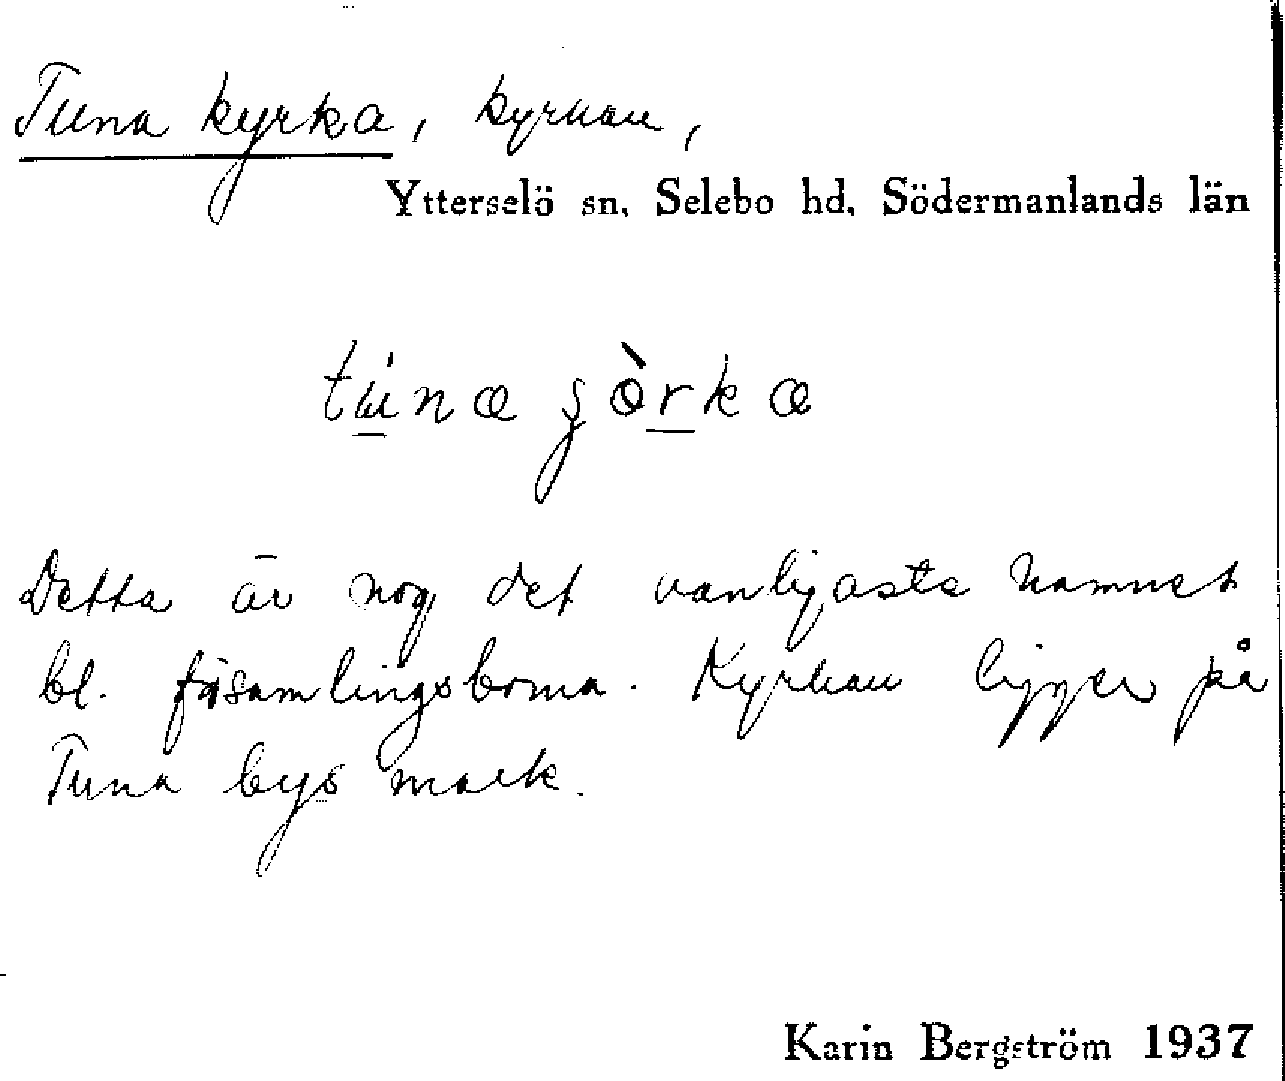 Tuna kyrka, kyrkan,
Ytterselö sn, Selebo hd, Södermanlands län
Detta är nog det vanligaste namnet
bl. församlingsborna. Kyrkan ligger på
Tuna bys mark.
Karin Bergström 1937